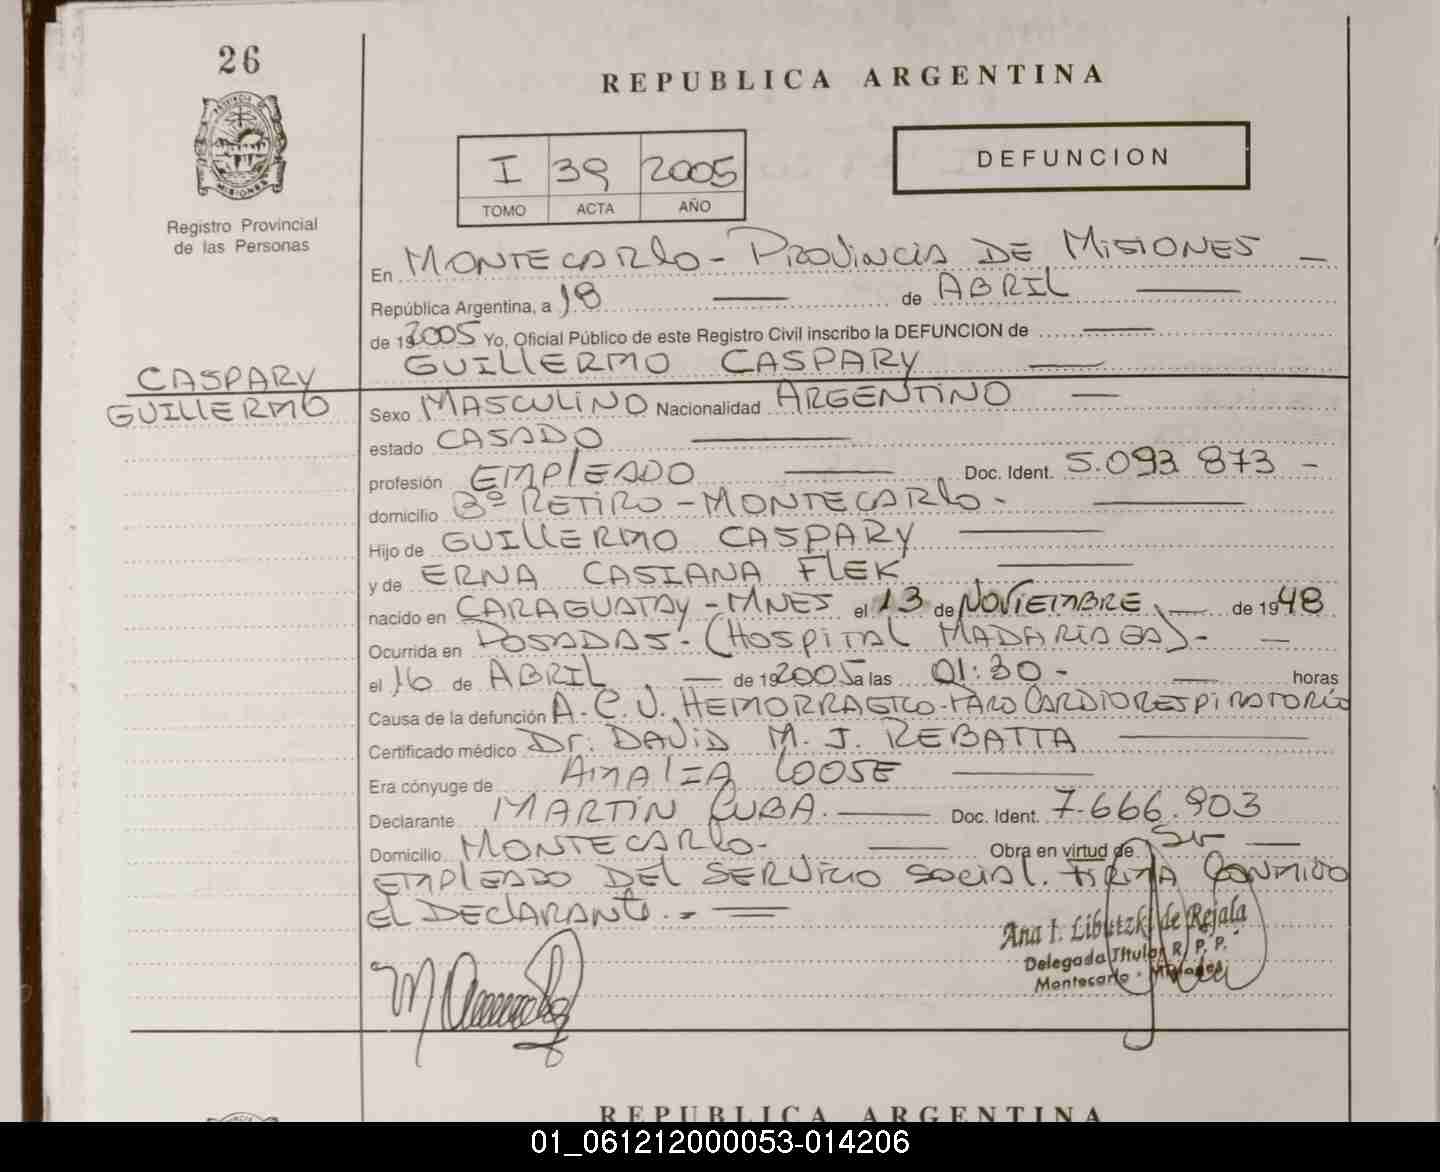 26
REPUBLICA ARGENTINA
PROVINCIA DE
MISIONES
I 39 2005
TOMO ACTA AÑO
DEFUNCION
Registro Provincial
de las Personas
En MONTECARLO - PROVINCIA DE MISIONES —
República Argentina, a 18 — de ABRIL —
de 192005 Yo, Oficial Público de este Registro Civil inscribo la DEFUNCION de —
GUILLERMO CASPARY —
CASPARY
GUILLERMO
Sexo MASCULINO Nacionalidad ARGENTINO —
estado CASADO —
profesión EMPLEADO — Doc. Ident. 5.093 873 -
domicilio Bº RETIRO - MONTECARLO - —
Hijo de GUILLERMO CASPARY —
y de ERNA CASIANA FLEK —
nacido en CARAGUATAY - MNES el 13 de NOVIEMBRE — de 1948
Ocurrida en POSADAS - (HOSPITAL MADARIAGA) - —
el 16 de ABRIL — de 192005 a las 01:30 - — horas
Causa de la defunción A.C.V. HEMORRAGICO - PARO CARDIORESPIRATORIO
Certificado médico Dr. DAVID M. J. REBATTA —
Era cónyuge de AMALIA LOOSE —
Declarante MARTIN CUBA. — Doc. Ident. 7.666.903
Domicilio MONTECARLO - — Obra en virtud de Sr —
EMPLEADO DEL SERVICIO SOCIAL. FIRMA CONMIGO
EL DECLARANTE. - —
Ana I. Libutzki de Rejala
Delegada Titular R. P. P.
Montecarlo - Misiones
REPUBLICA ARGENTINA
01_061212000053-014206